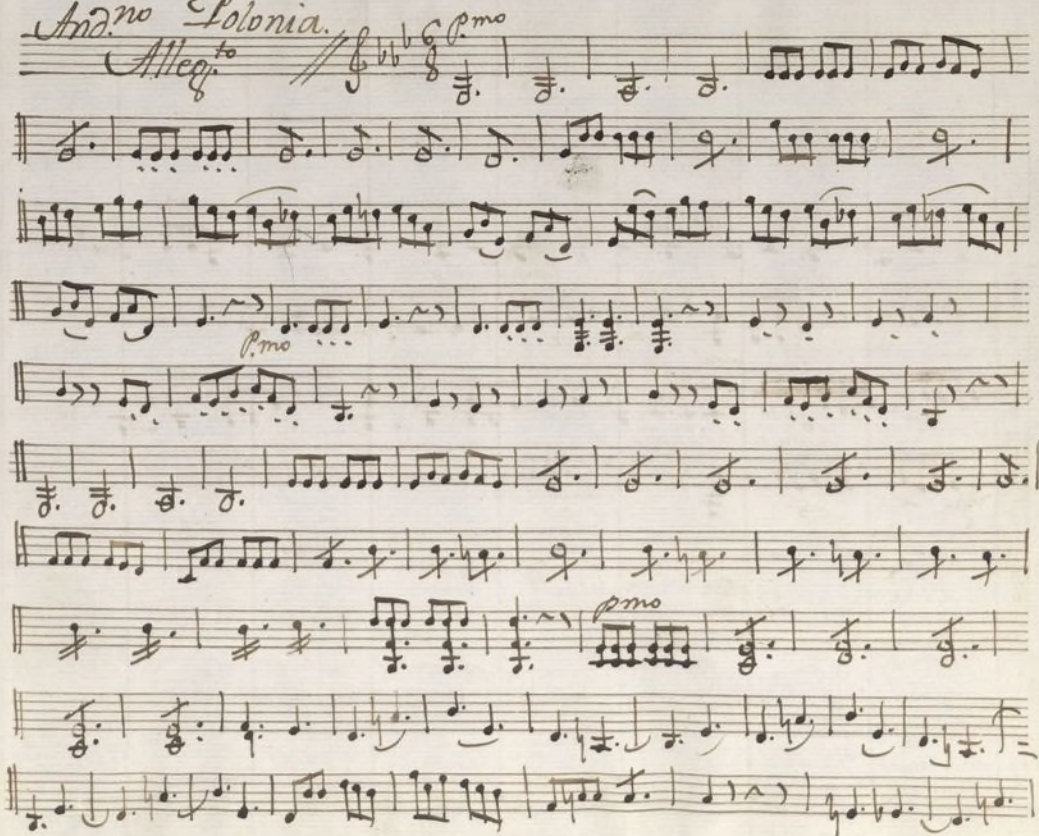 And.no Polonia.
Allegto
6 8 P.mo
P.mo
pmo